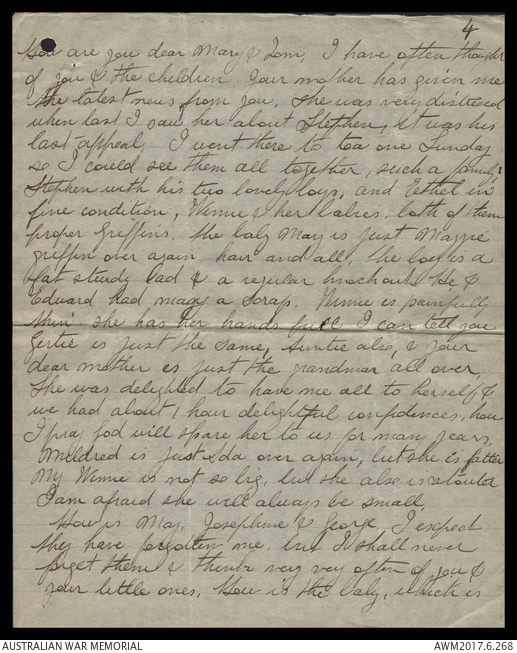 4
How are you dear Mary & Tom, I have often thought
of you & the children Your mother has given me
the latest news from you. She was very distressed
when last I saw her about Stephen, it was his
last appeal, I went there to tea one Sunday
so I could see them all together, such a family
Stephen with his two lovely boys, and Ethel in
fine condition, Winnie & her babies, both of them
proper Griffins. The baby May is just Maggie
griffin over again hair and all, the boy is a
fat sturdy lad & a regular knockout He &
Edward had many a scrap. Winnie is painfully
thin she has her hands full I can tell you
Gertie is just the same, Auntie also, & your
dear mother is just the grandmar all over,
She was delighted to have me all to herself &
we had about 1 hour delightful confidences, how
I pray God will spare her to us for many years,
Mildred is just Ida over again, but she is fatter
My Winnie is not so big, but she also is stouter
I am afraid she will always be small,
How is May, Josephine & George, I expect
they have forgotten me, but I shall never
forget them & think very very often of you &
your little ones. How is the baby, which is
AUSTRALIAN WAR MEMORIAL
AWM2017.6.268